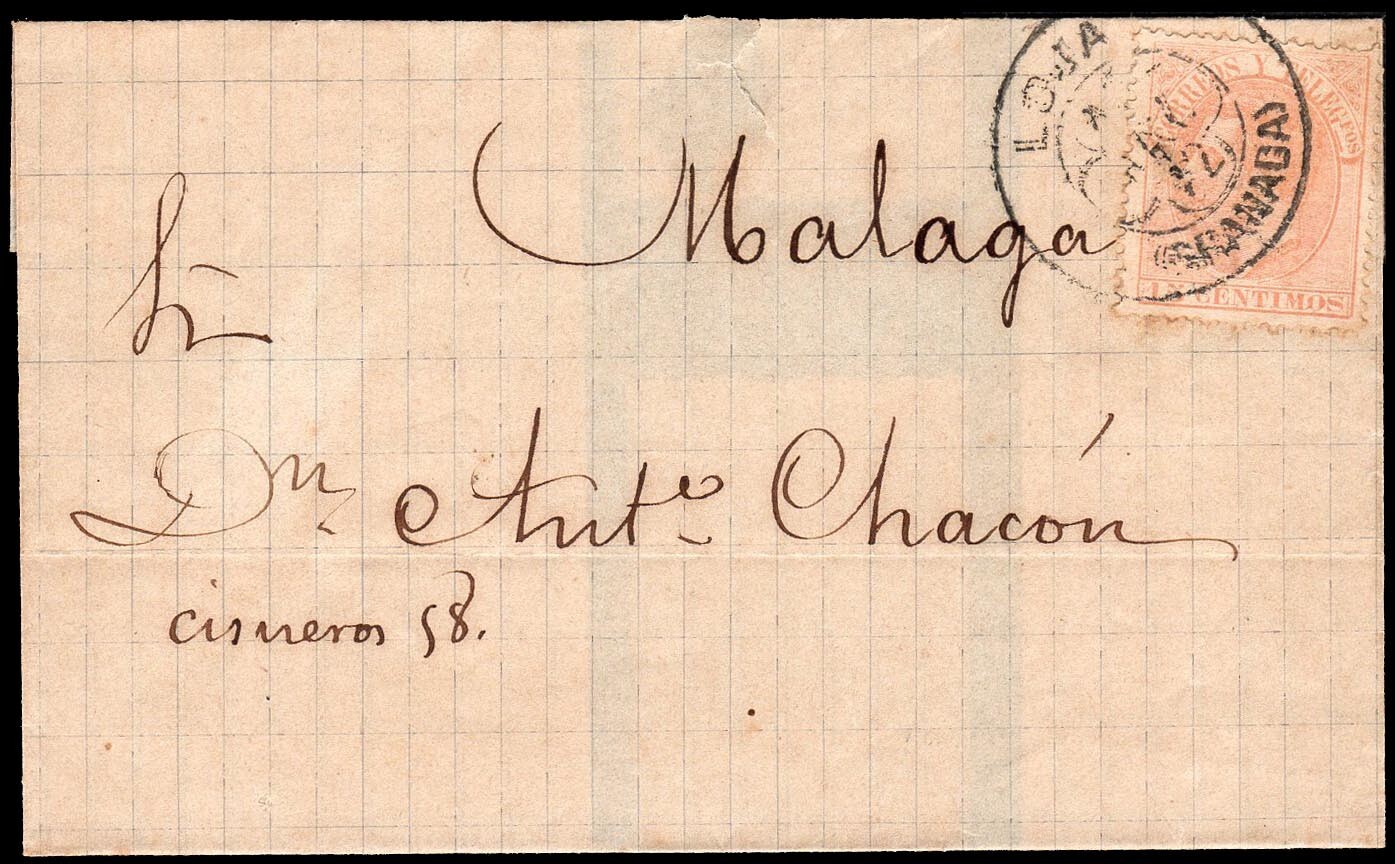 LOJA
(GRANADA)
CORREOS Y TELEGFOS
CENTIMOS
Malaga
Sr
Dn Anto Chacón
cisneros 58.